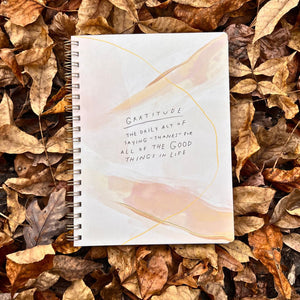 GRATITUDE
THE DAILY ACT OF
SAYING "THANKS" FOR
ALL OF THE GOOD
THINGS IN LIFE